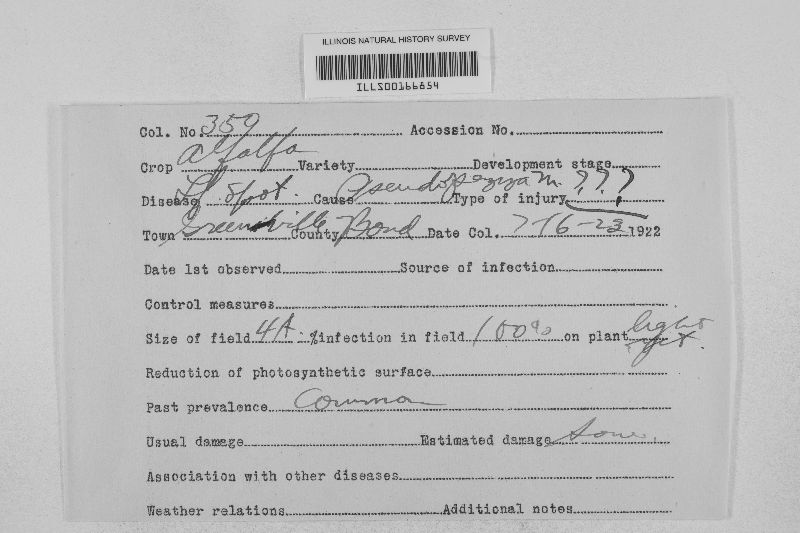 ILLINOIS NATURAL HISTORY SURVEY
ILLS00166854
Col. No. 359 Accession No.
Crop Alfalfa Variety Development stage
Disease Lf Spot. Cause Pseudopeziza m. Type of injury ???
Town Greenville County Bond Date Col. 7-16-23 1922
Date 1st observed Source of infection
Control measures
Size of field 4A. % infection in field 100% on plant light
Reduction of photosynthetic surface
Past prevalence Common
Usual damage Estimated damage Some.
Association with other diseases
Weather relations Additional notes